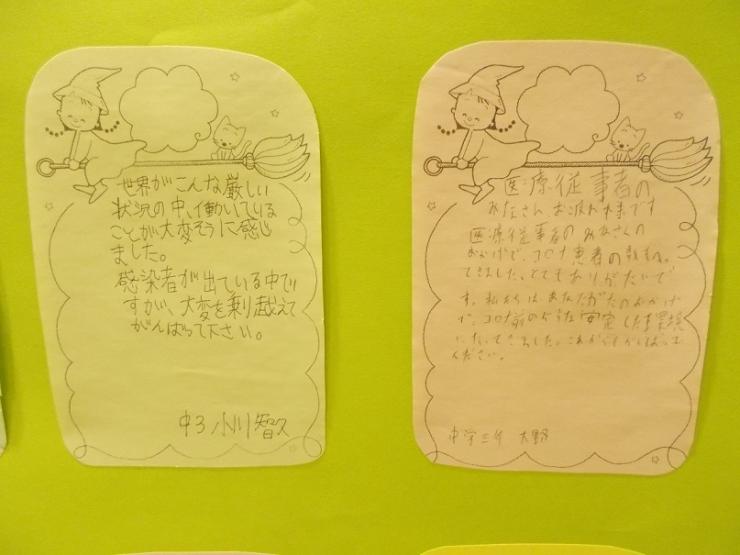 世界がこんな厳しい
状況の中、働いている
ことが大変そうに感じ
ました。
感染者が出ている中で
すが、大変を乗り越えて
がんばって下さい。
中3 小川智久
医療従事者の
みなさん、お疲れ様です
医療従事者のみなさんの
おかげで、コロナ患者の数も
てきました。とてもありがたいで
す。私たちは、あなたがたのおかげ
で、コロナ前のような安定した環境
になってきました。これからもがんばって
ください。
中学三年 大野